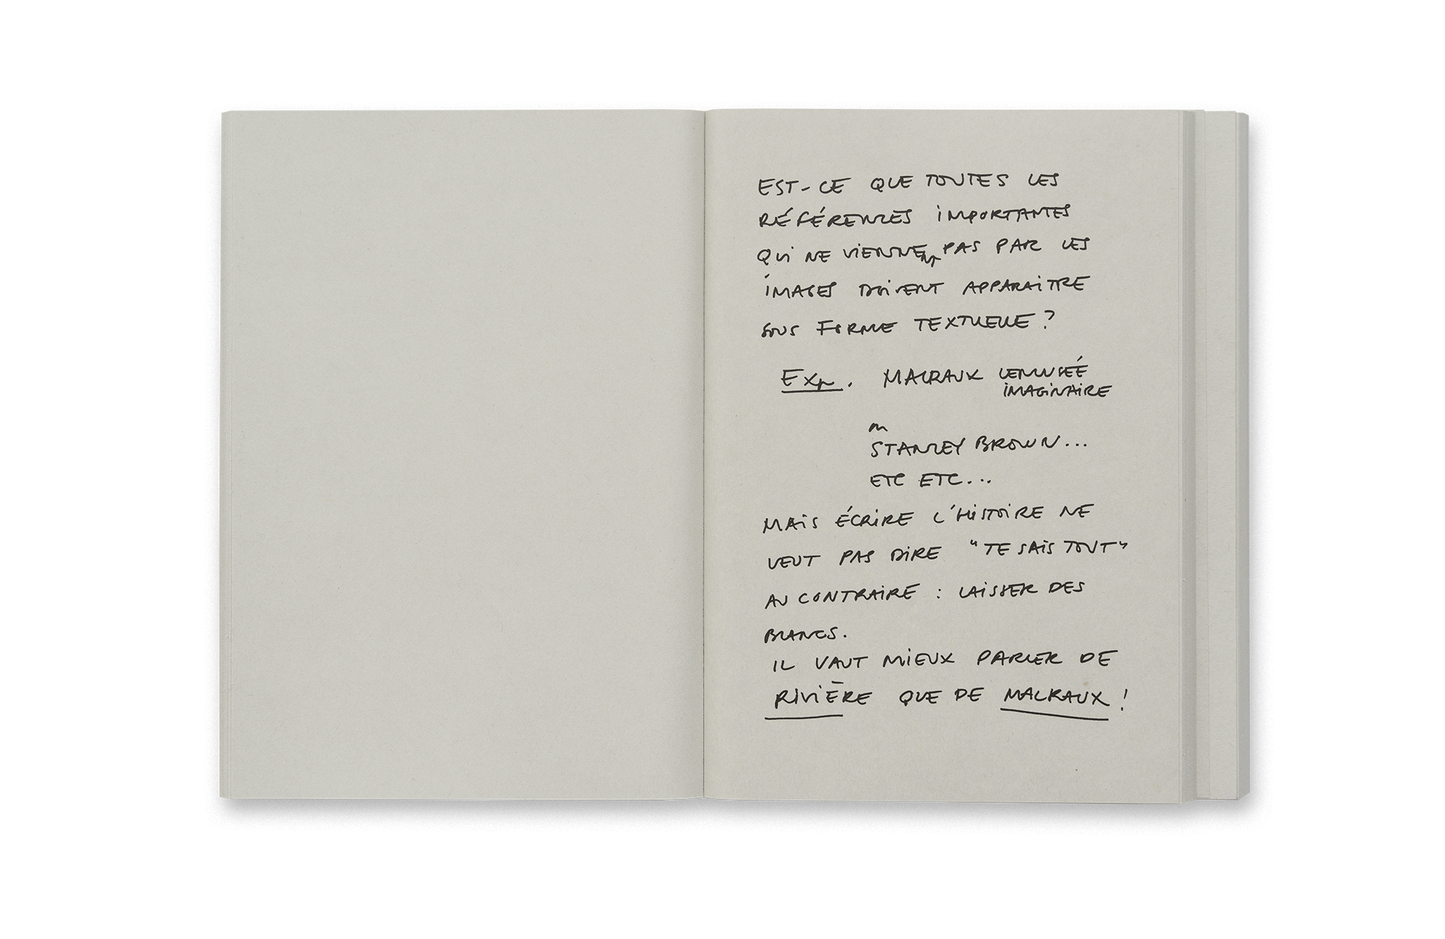 EST-CE QUE TOUTES LES
RÉFÉRENCES IMPORTANTES
QUI NE VIENNENT PAS PAR LES
IMAGES DOIVENT APPARAITRE
SOUS FORME TEXTUELLE ?
MALRAUX LE MUSÉE
IMAGINAIRE
ou
STANLEY BROWN...
ETC ETC...
MAIS ÉCRIRE L'HISTOIRE NE
VEUT PAS DIRE "JE SAIS TOUT"
AU CONTRAIRE : LAISSER DES
BLANCS.
IL VAUT MIEUX PARLER DE
RIVIÈRE QUE DE MALRAUX !